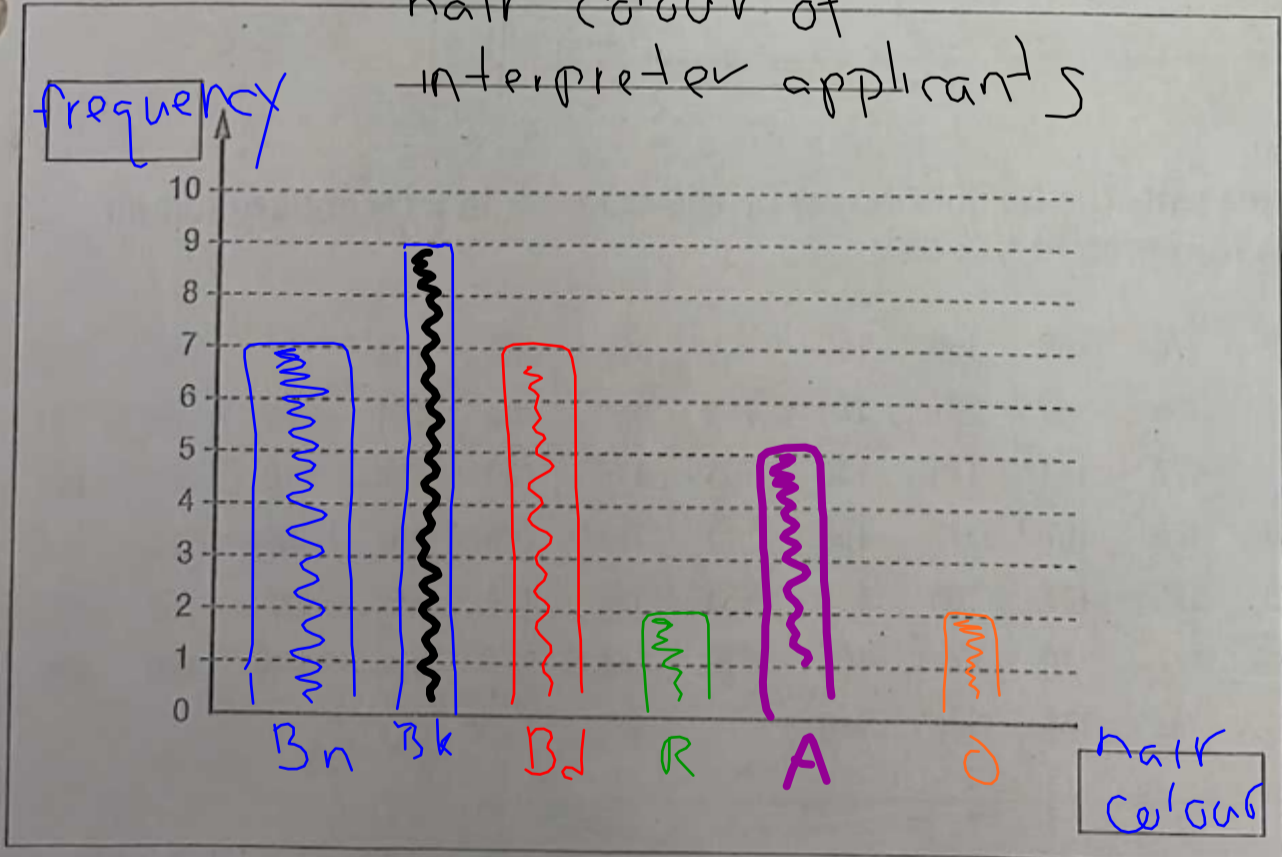 hair colour of
interpreter applicants
frequency
10
9
8
7
6
5
4
3
2
1
0
Bn Bk Bd R A O
hair
colour